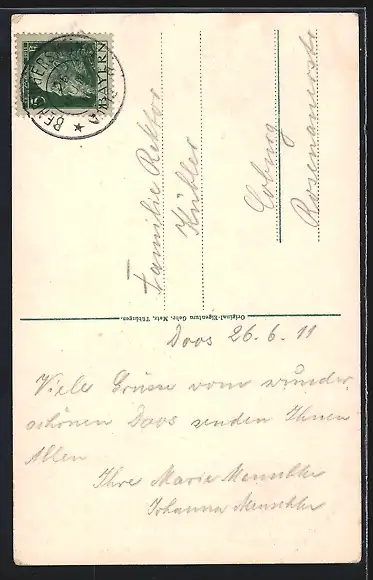 5
BAYERN
Familie Rektor
Köhler
Coburg
Rosenauerstr
Original-Eigentum Gebr. Metz, Tübingen.
Doos 26.6.11
Viele Grüsse vom wunder-
schönen Doos senden Ihnen
Allen
Ihre Marie Menschke
Johanna Menschke